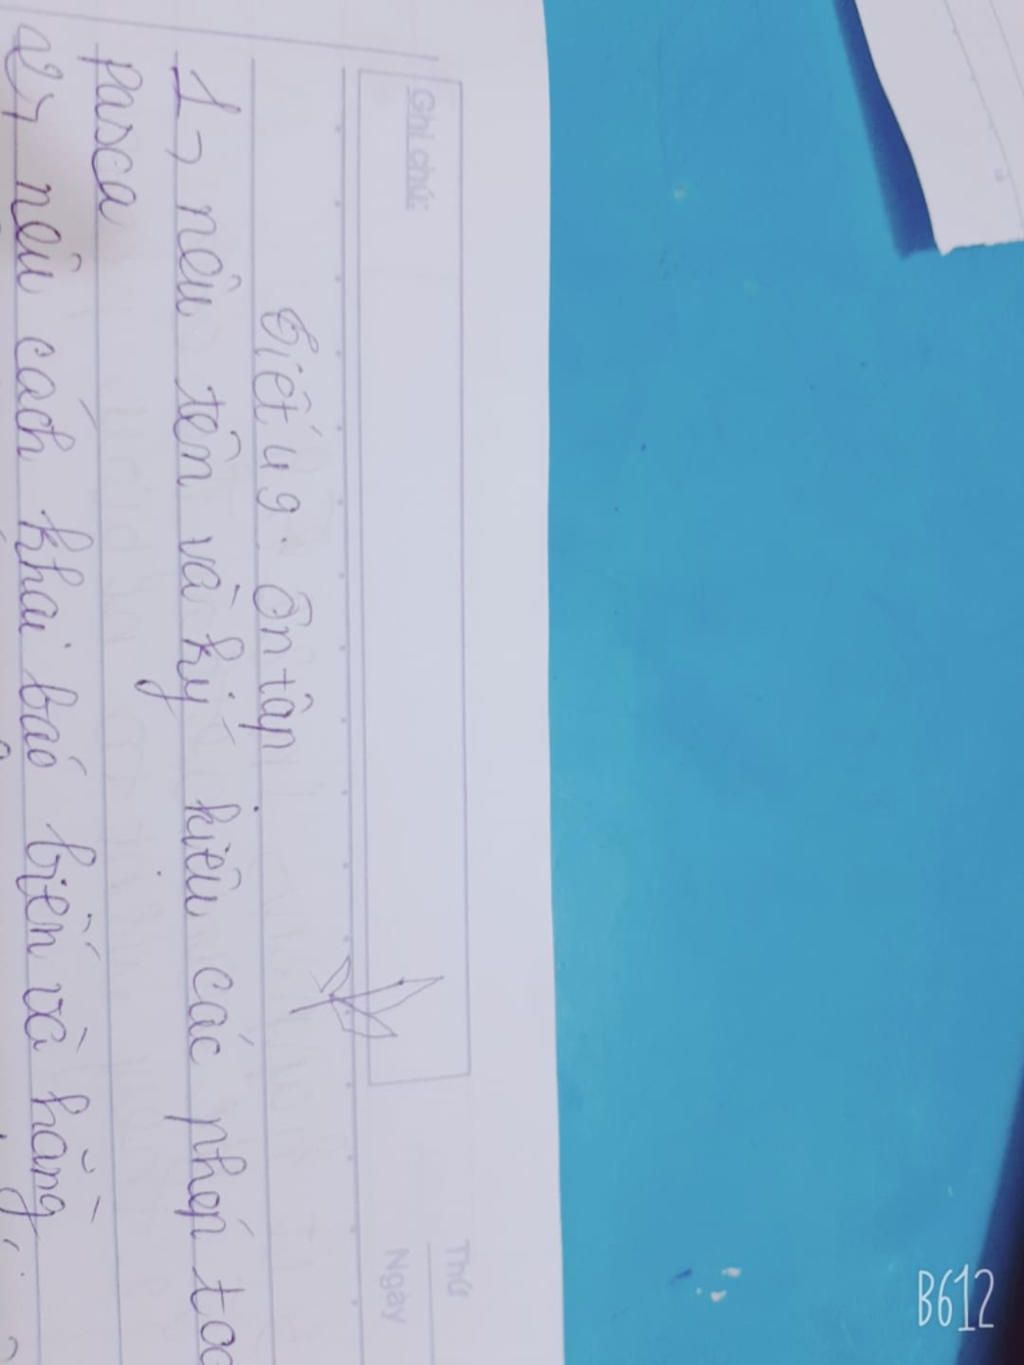 Ghi chú:
Thứ
Ngày
Tiết 49. Ôn tập
1, nêu tên và ký hiệu các phép toá
Pasca
2, nêu cách khai báo biến và hằng
B612